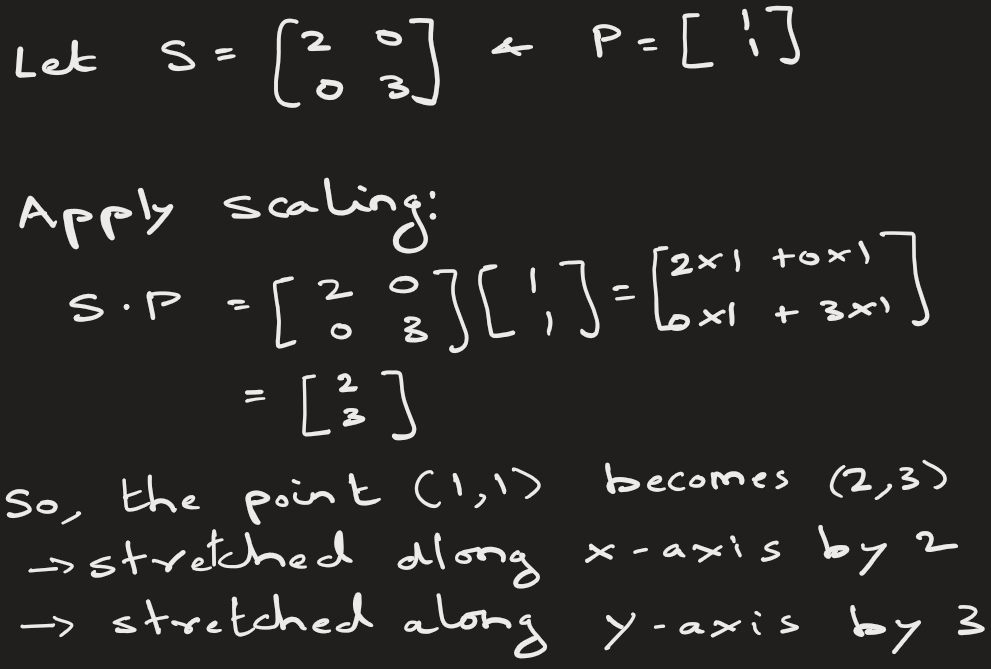 Let S = [2 0; 0 3] & P = [1; 1]
Apply scaling:
S · P = [2 0; 0 3] [1; 1] = [2×1 + 0×1; 0×1 + 3×1]
= [2; 3]
So, the point (1,1) becomes (2,3)
→ stretched along x-axis by 2
→ stretched along y-axis by 3